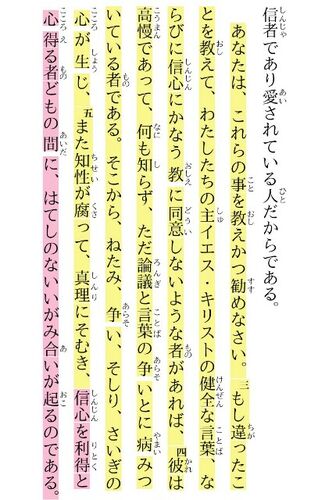 信者であり愛されている人だからである。
あなたは、これらの事を教えかつ勧めなさい。三もし違ったこ
とを教えて、わたしたちの主イエス・キリストの健全な言葉、な
らびに信心にかなう教に同意しないような者があれば、四彼は
高慢であって、何も知らず、ただ論議と言葉の争いとに病みつ
いている者である。そこから、ねたみ、争い、そしり、さいぎの
心が生じ、五また知性が腐って、真理にそむき、信心を利得と
心得る者どもの間に、はてしのないいがみ合いが起るのである。